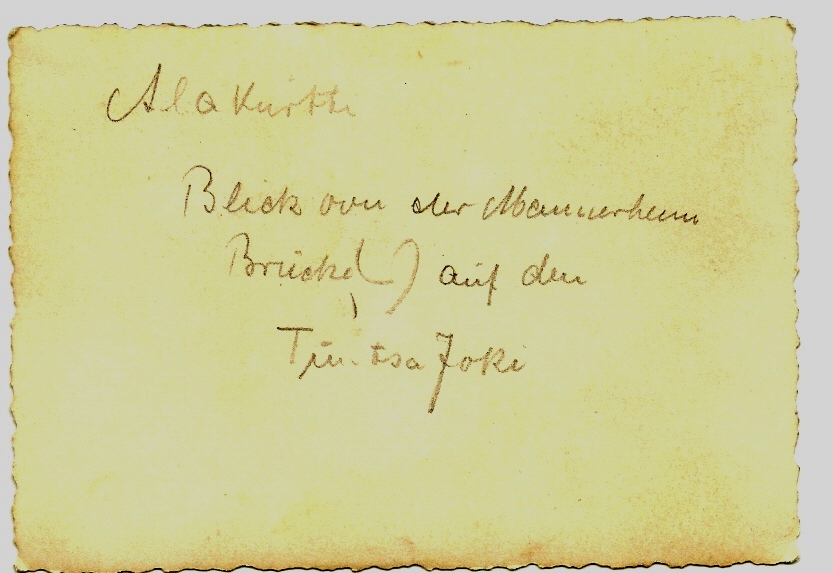 Alakurtti
Blick von der Mannerheim
Brücke( ) auf den
Tuntsa Joki